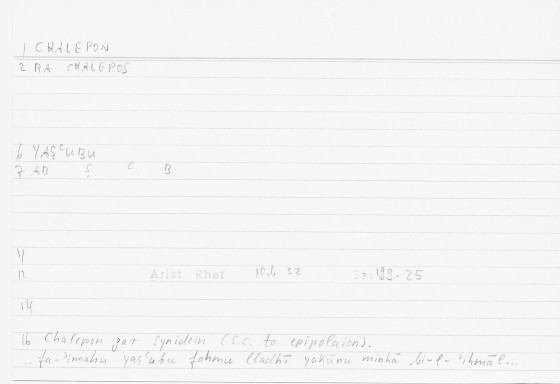 1 CHALEPON
2 BA CHALEPOS
6 YAṢʿUBU
7 AB Ṣ ʿ B
11
12 Arist Rhet 10b 32 199.25
14
16 Chalepon gar synidein (s.c. to epipolaion).
.. fa-ʾinnahu yaṣʿubu fahmu lladhī yakūnu minhā bi-l-ʾihmāl...